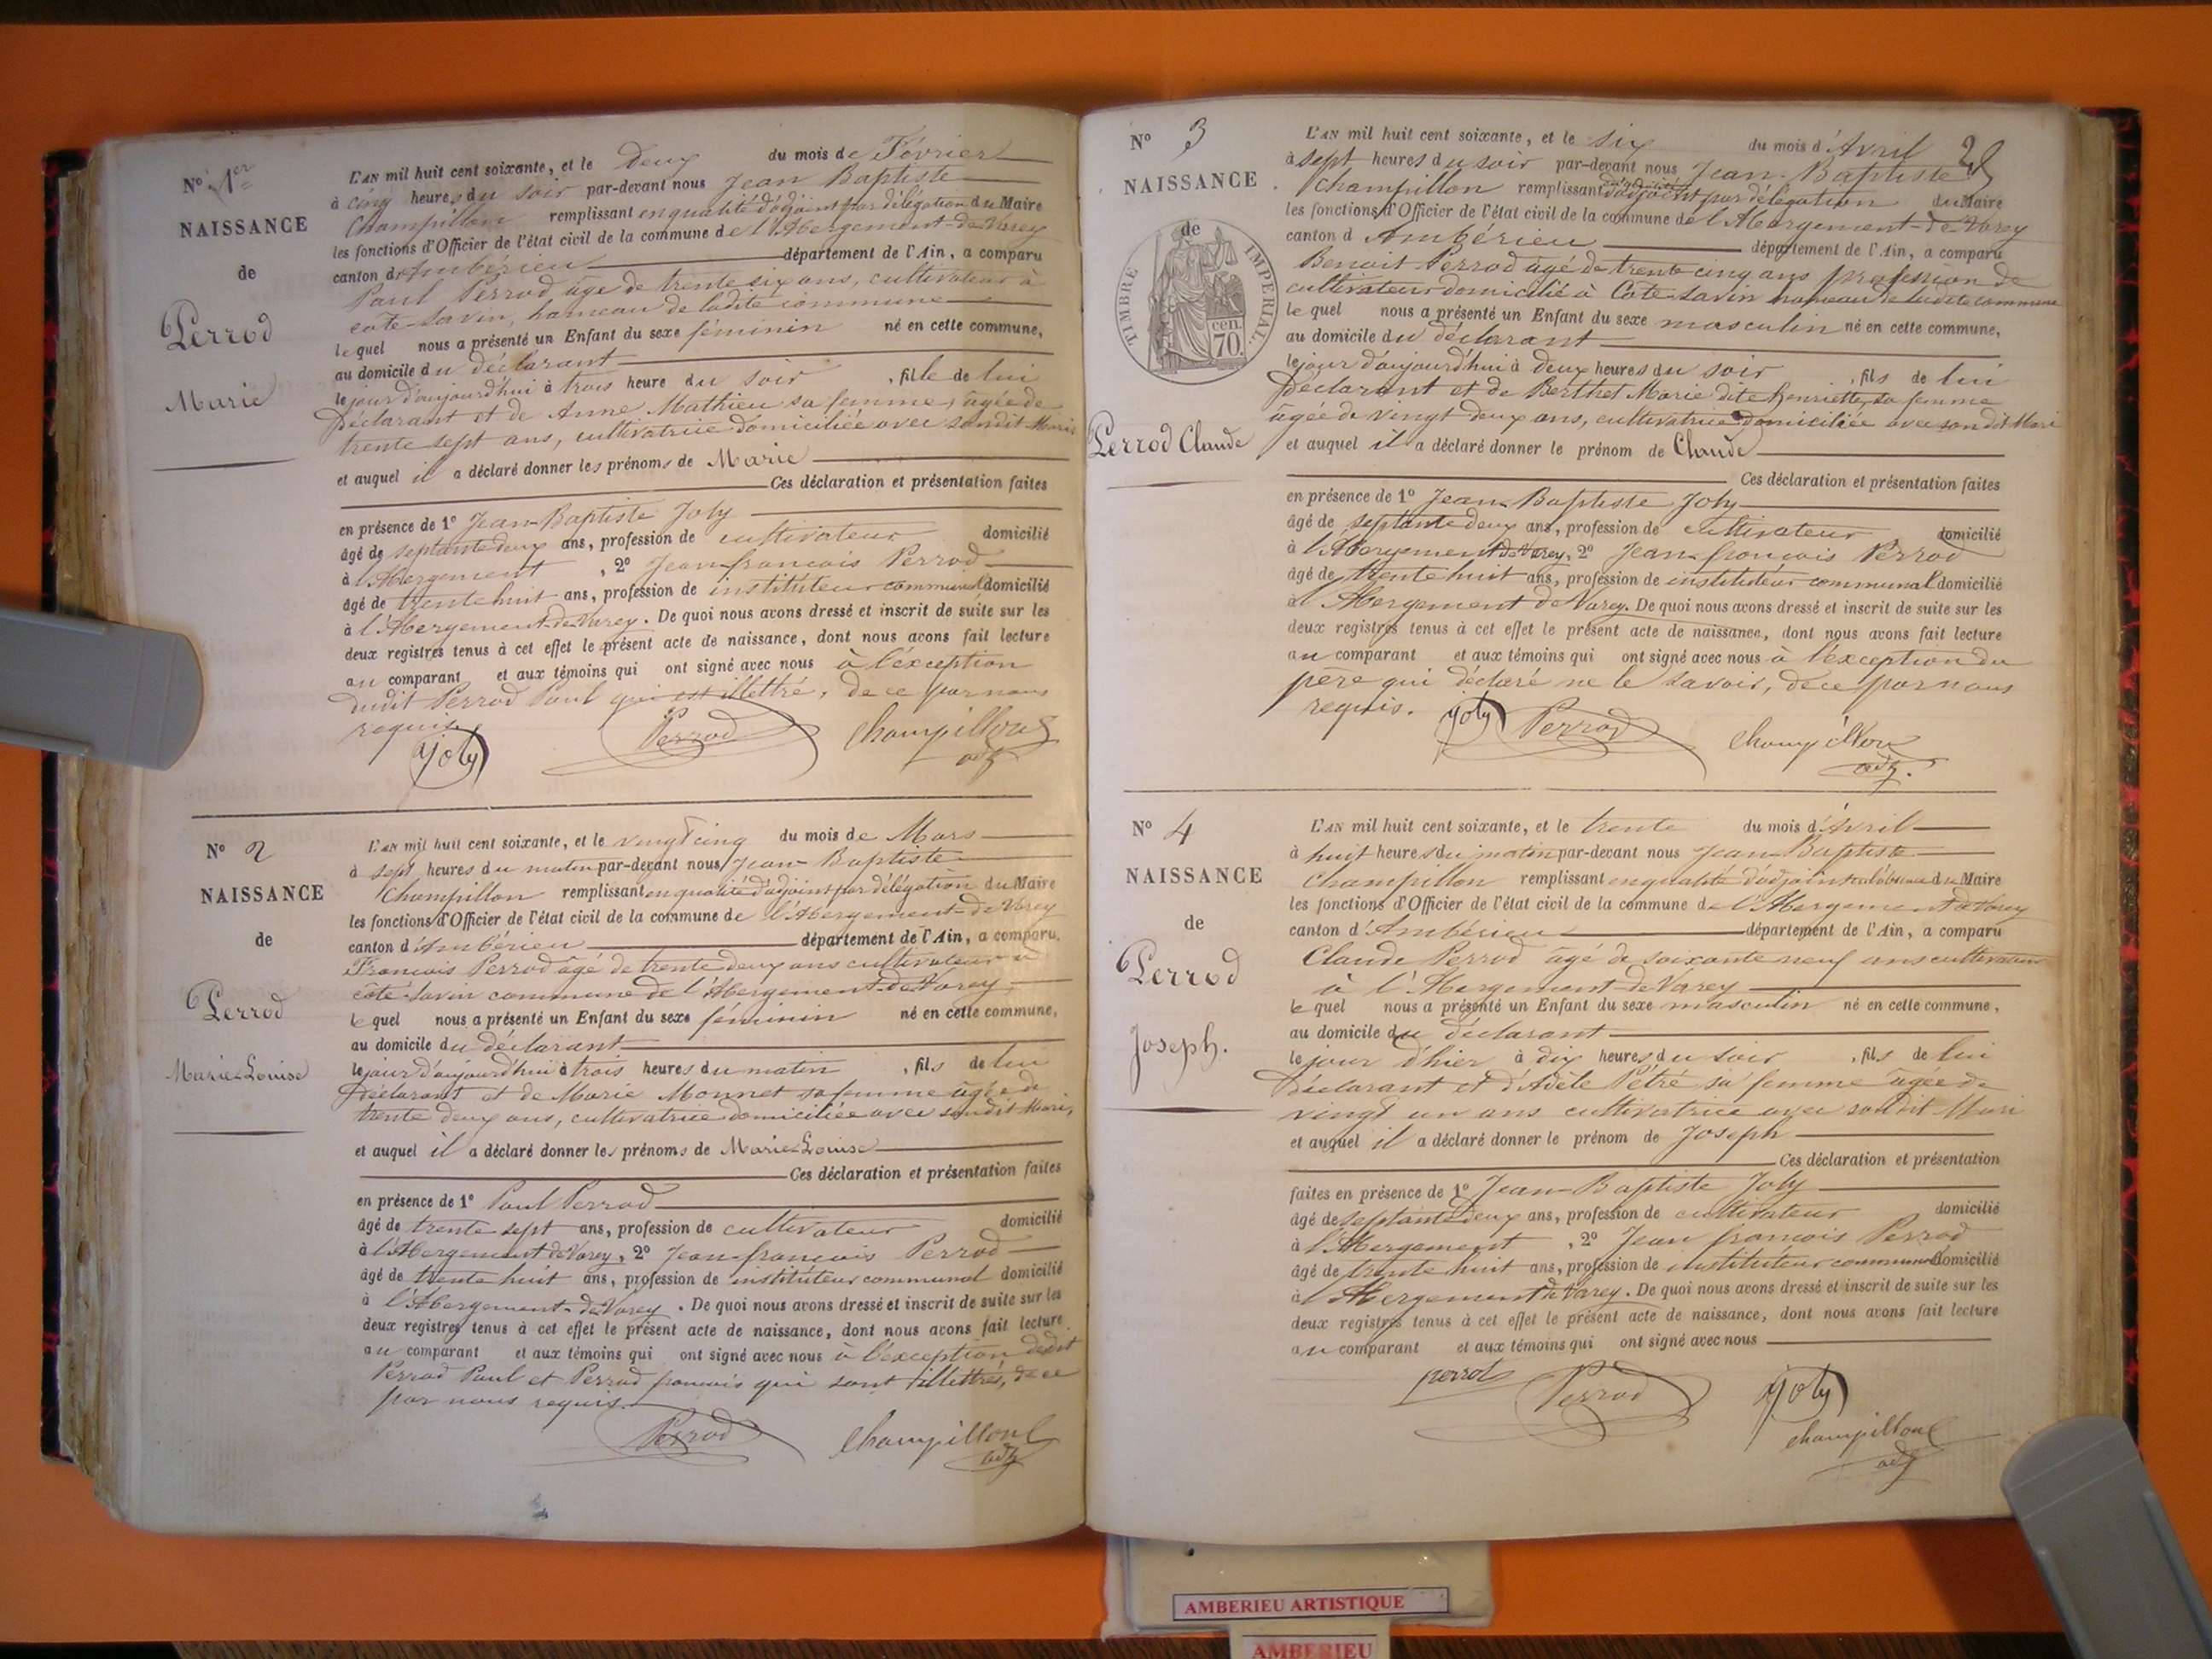 N° 1er
NAISSANCE
de
Perrod
Marie
L'AN mil huit cent soixante, et le Deux du mois de Février
à cinq heures du soir par-devant nous Jean Baptiste
Champillon remplissant en qualité d'adjoint par délégation du Maire
les fonctions d'Officier de l'état civil de la commune de l'Abergement-de-Varey
canton d'Ambérieu département de l'Ain, a comparu
Paul Perrod âgé de trente six ans, cultivateur à
cote-Savin, hameau de ladite commune
lequel nous a présenté un Enfant du sexe féminin né en cette commune,
au domicile du déclarant
le jour d'aujourd'hui à trois heure du soir , fille de lui
Déclarant et de Anne Mathieu sa femme, âgée de
trente sept ans, cultivatrice domiciliée avec sondit Mari
et auquel il a déclaré donner les prénoms de Marie
Ces déclaration et présentation faites
en présence de 1° Jean-Baptiste Joly
âgé de septante deux ans, profession de cultivateur domicilié
à l'Abergement , 2° Jean-francois Perrod
âgé de trente huit ans, profession de instituteur communal domicilié
à l'Abergement-de-Varey. De quoi nous avons dressé et inscrit de suite sur les
deux registres tenus à cet effet le présent acte de naissance, dont nous avons fait lecture
au comparant et aux témoins qui ont signé avec nous à l'éxception
dudit Perrod Paul qui est illettré, de ce par nous
requis.
Joly Perrod Champillon
adj
N° 2
NAISSANCE
de
Perrod
Marie-Louise
L'AN mil huit cent soixante, et le vingt cinq du mois de Mars
à sept heures du matin par-devant nous Jean-Baptiste
Champillon remplissant en qualité d'adjoint par délégation du Maire
les fonctions d'Officier de l'état civil de la commune de l'Abergement-de-Varey
canton d'Ambérieu département de l'Ain, a comparu
Francois Perrod âgé de trente deux ans cultivateur à
côte-Savin commune de l'Abergement-de-Varey
lequel nous a présenté un Enfant du sexe féminin né en cette commune,
au domicile du déclarant
le jour d'aujourd'hui à trois heures du matin , fils de lui
Déclarant et de Marie Monnet sa femme âgée de
trente deux ans, cultivatrice domiciliée avec sondit Mari,
et auquel il a déclaré donner les prénoms de Marie-Louise
Ces déclaration et présentation faites
en présence de 1° Paul Perrod
âgé de trente-sept ans, profession de cultivateur domicilié
à l'Abergement de Varey, 2° Jean-francois Perrod
âgé de trente huit ans, profession de instituteur communal domicilié
à l'Abergement-de-Varey. De quoi nous avons dressé et inscrit de suite sur les
deux registres tenus à cet effet le présent acte de naissance, dont nous avons fait lecture
au comparant et aux témoins qui ont signé avec nous à l'éxception dudit
Perrod Paul et Perrod francois qui sont illettrés, de ce
par nous requis.
Perrod Champillon
adj
N° 3
NAISSANCE
de
TIMBRE IMPERIAL
70 cen.
Perrod Claude
L'AN mil huit cent soixante, et le six du mois d'Avril
à sept heures du soir par-devant nous Jean-Baptiste
Champillon remplissant en qualité d'adjoint par délégation du Maire
les fonctions d'Officier de l'état civil de la commune de l'Abergement-de-Varey
canton d'Ambérieu département de l'Ain, a comparu
Benoit Perrod âgé de trente cinq ans profession de
cultivateur domicilié à Cote-Savin hameau de ladite commune
lequel nous a présenté un Enfant du sexe masculin né en cette commune,
au domicile du déclarant
le jour d'aujourd'hui à deux heures du soir , fils de lui
Déclarant et de Berthet Marie dite henriette, sa femme
âgée de vingt deux ans, cultivatrice domiciliée avec son dit Mari
et auquel il a déclaré donner le prénom de Claude
Ces déclaration et présentation faites
en présence de 1° Jean-Baptiste Joly
âgé de septante deux ans, profession de cultivateur domicilié
à l'Abergement de Varey, 2° Jean-francois Perrod
âgé de trente huit ans, profession de instituteur communal domicilié
à l'Abergement de Varey. De quoi nous avons dressé et inscrit de suite sur les
deux registres tenus à cet effet le présent acte de naissance, dont nous avons fait lecture
au comparant et aux témoins qui ont signé avec nous à l'éxception du
père qui déclaré ne le savoir, de ce par nous
requis. Joly Perrod Champillon
adj.
N° 4
NAISSANCE
de
Perrod
Joseph.
L'AN mil huit cent soixante, et le trente du mois d'Avril
à huit heures du matin par-devant nous Jean-Baptiste
Champillon remplissant en qualité d'adjoint du Maire
les fonctions d'Officier de l'état civil de la commune de l'Abergement de Varey
canton d'Ambérieu département de l'Ain, a comparu
Claude Perrod âgé de soixante neuf ans cultivateur
à l'Abergement-de-Varey
lequel nous a présenté un Enfant du sexe masculin né en cette commune,
au domicile du déclarant
le jour d'hier à dix heures du soir , fils de lui
Déclarant et d'Adèle Pétré sa femme âgée de
vingt un ans cultivatrice avec sondit Mari
et auquel il a déclaré donner le prénom de Joseph
Ces déclaration et présentation
faites en présence de 1° Jean-Baptiste Joly
âgé de septante deux ans, profession de cultivateur domicilié
à l'Abergement , 2° Jean francois Perrod
âgé de trente huit ans, profession de instituteur communal domicilié
à l'Abergement de Varey. De quoi nous avons dressé et inscrit de suite sur les
deux registres tenus à cet effet le présent acte de naissance, dont nous avons fait lecture
au comparant et aux témoins qui ont signé avec nous
perrod Perrod Joly
Champillon
adj
AMBERIEU ARTISTIQUE
AMBERIEU